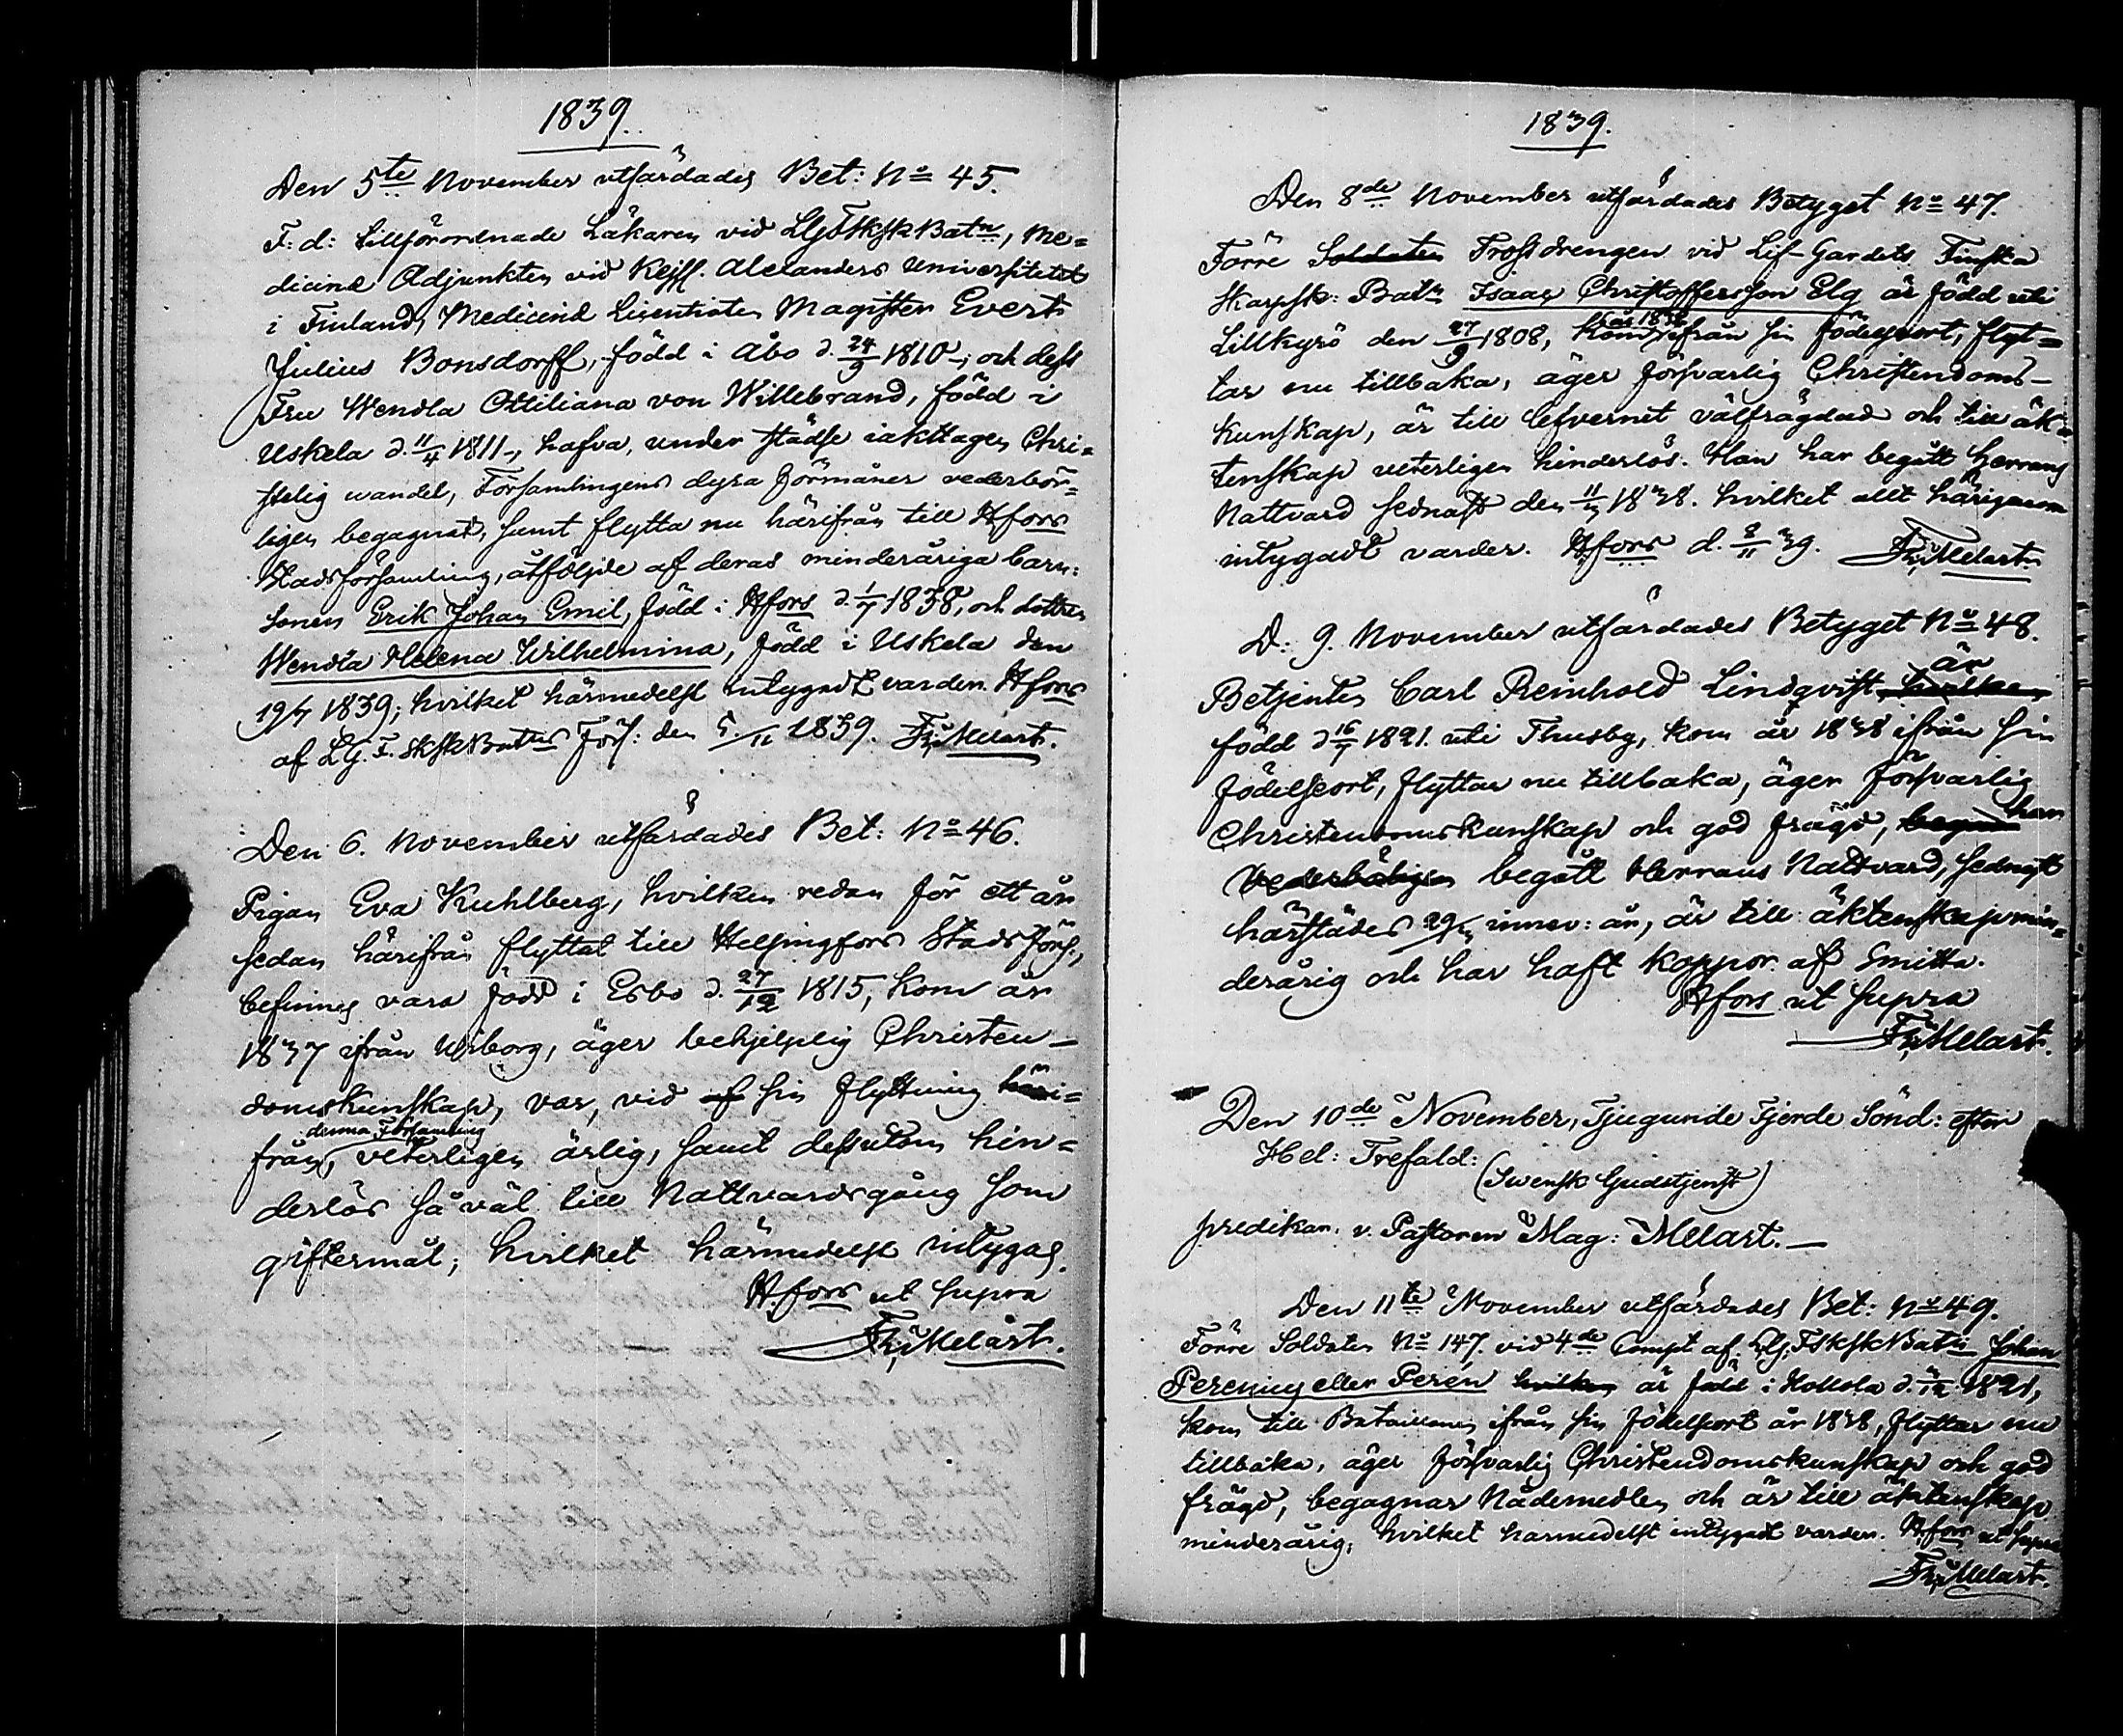 1839.
Den 5te November utfärdades Bet: No 45.
F: d: tillförordnade Läkaren vid LGFSkskBatn, Me=
dicine Adjunkten vid Kejs. Alexanders Universitetet
i Finland, Medicine Licentiaten Magister Evert
Julius Bonsdorff, född i Åbo d. 24/9 1810, och dess
Fru Wendla Ottiliana von Willebrand, född i
Uskela d. 11/4 1811, hafva, under städse iakttagen Chri=
stelig wandel, Församlingens dyra förmåner vederbör=
ligen begagnat, samt flytta nu härifrån till Hfors
Stadsförsamling, åtföljde af deras minderåriga barn:
Sonen Erik Johan Emil, född i Hfors d. 1/7 1838, och dottren
Wendla Helena Wilhelmina, född i Uskela den
19/7 1839; hvilket härmedelst intygadt varder. Hfors
af LG. F. SkskBatns Förs: den 5/11 1839. Fr: Melart.
Den 6. November utfärdades Bet: No 46.
Pigan Eva Kuhlberg, hvilken redan för ett år
sedan härifrån flyttat till Helsingfors Stads Förs.,
befinnes vara född i Esbo d. 27/12 1815, kom år
1837 ifrån Wiborg, äger behjelplig Christen-
domskunskap, var, vid af sin flyttning häri=
denna Församling
från, veterligen ärlig, samt dessutom hin=
derlös så väl till Nattvardsgång som
giftermål; hvilket härmedelst intygas.
Hfors ut supra
Fr: Melart.
1839.
Den 8de November utfärdades Betyget No 47.
Förre Soldaten Trossdrengen vid Lif-Gardets Finska
Skarpsk: Batn Isaac Christoffersson Elg är född uti
Lillkyrö den 27/9 1808, kom år 1838 ifrån sin födelseort, flyt=
tar nu tillbaka, äger försvarlig Christendoms-
kunskap, är till lefvernet välfrägdad och till äk=
tenskap veterligen hinderlös. Han har begått Herrans
Nattvard sednast den 1838. hvilket allt härigenom
intygadt varder. Hfors d. 8/11 39. Fr: Melart.
D: 9. November utfärdades Betyget No 48.
är
Betjenten Carl Reinhold Lindqvist hvilken
född d 16/7 1821. uti Thusby, kom år 1838 ifrån sin
födelseort, flyttar nu tillbaka, äger försvarlig
Christendomskunskap och god frägd, har
begått Herrans Nattvard, sednast
härstädes innev: år, är till äktenskap min=
derårig och har haft koppor af Smitta.
Hfors ut supra
Fr: Melart.
Den 10de November, Tjugunde Fjerde Sönd: efter
Hel: Trefald:
(Swensk Gudstjenst)
predikan v. Pastoren Mag: Melart.—
Den 11te November utfärdades Bet: No 49.
Förre Soldaten No 147. vid 4de Compt af LG. FSkskBatn Johan
Perenius eller Perén hvilken är född i Hollola d. 1821,
kom till Bataillonen ifrån sin födelseort år 1838, flyttar nu
tillbaka, äger försvarlig Christendomskunskap och god
frägd, begagnar Nådemedlen och är till äktenskap
minderårig; hvilket härmedelst intygadt varder. Hfors ut supra
Fr: Melart.